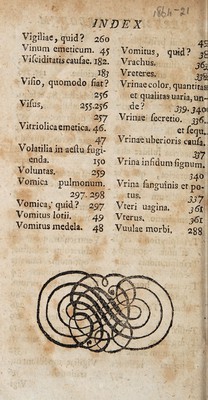 1864-21
INDEX
Vigiliae, quid? 260
Vinum emeticum. 45
Visciditatis causae. 182.
183
Visio, quomodo fiat?
256
Visus, 255.256
257
Vitriolica emetica. 46.
47
Volatilia in aestu fugi-
enda. 150
Voluntas. 259
Vomica pulmonum.
297. 298
Vomica, quid? 297
Vomitus lotii. 49
Vomitus medela. 48
Vomitus, quid?
Vrachus.
Vreteres.
Vrinae color, quantitas
et qualitas varia, un-
de? 339.
Vrinae secretio.
et sequ.
Vrinae uberioris causa.
337
Vrina insidum signum.
340
Vrina sanguinis et po-
tus. 337
Vteri vagina. 361
Vterus. 361
Vuulae morbi. 288